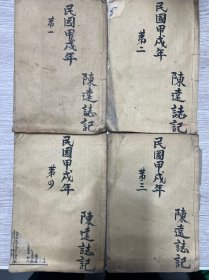 民國甲戌年
第一
陳遠誌記
民國甲戌年
第二
陳遠誌記
民國甲戌年
第四
陳遠誌記
民國甲戌年
第三
陳遠誌記